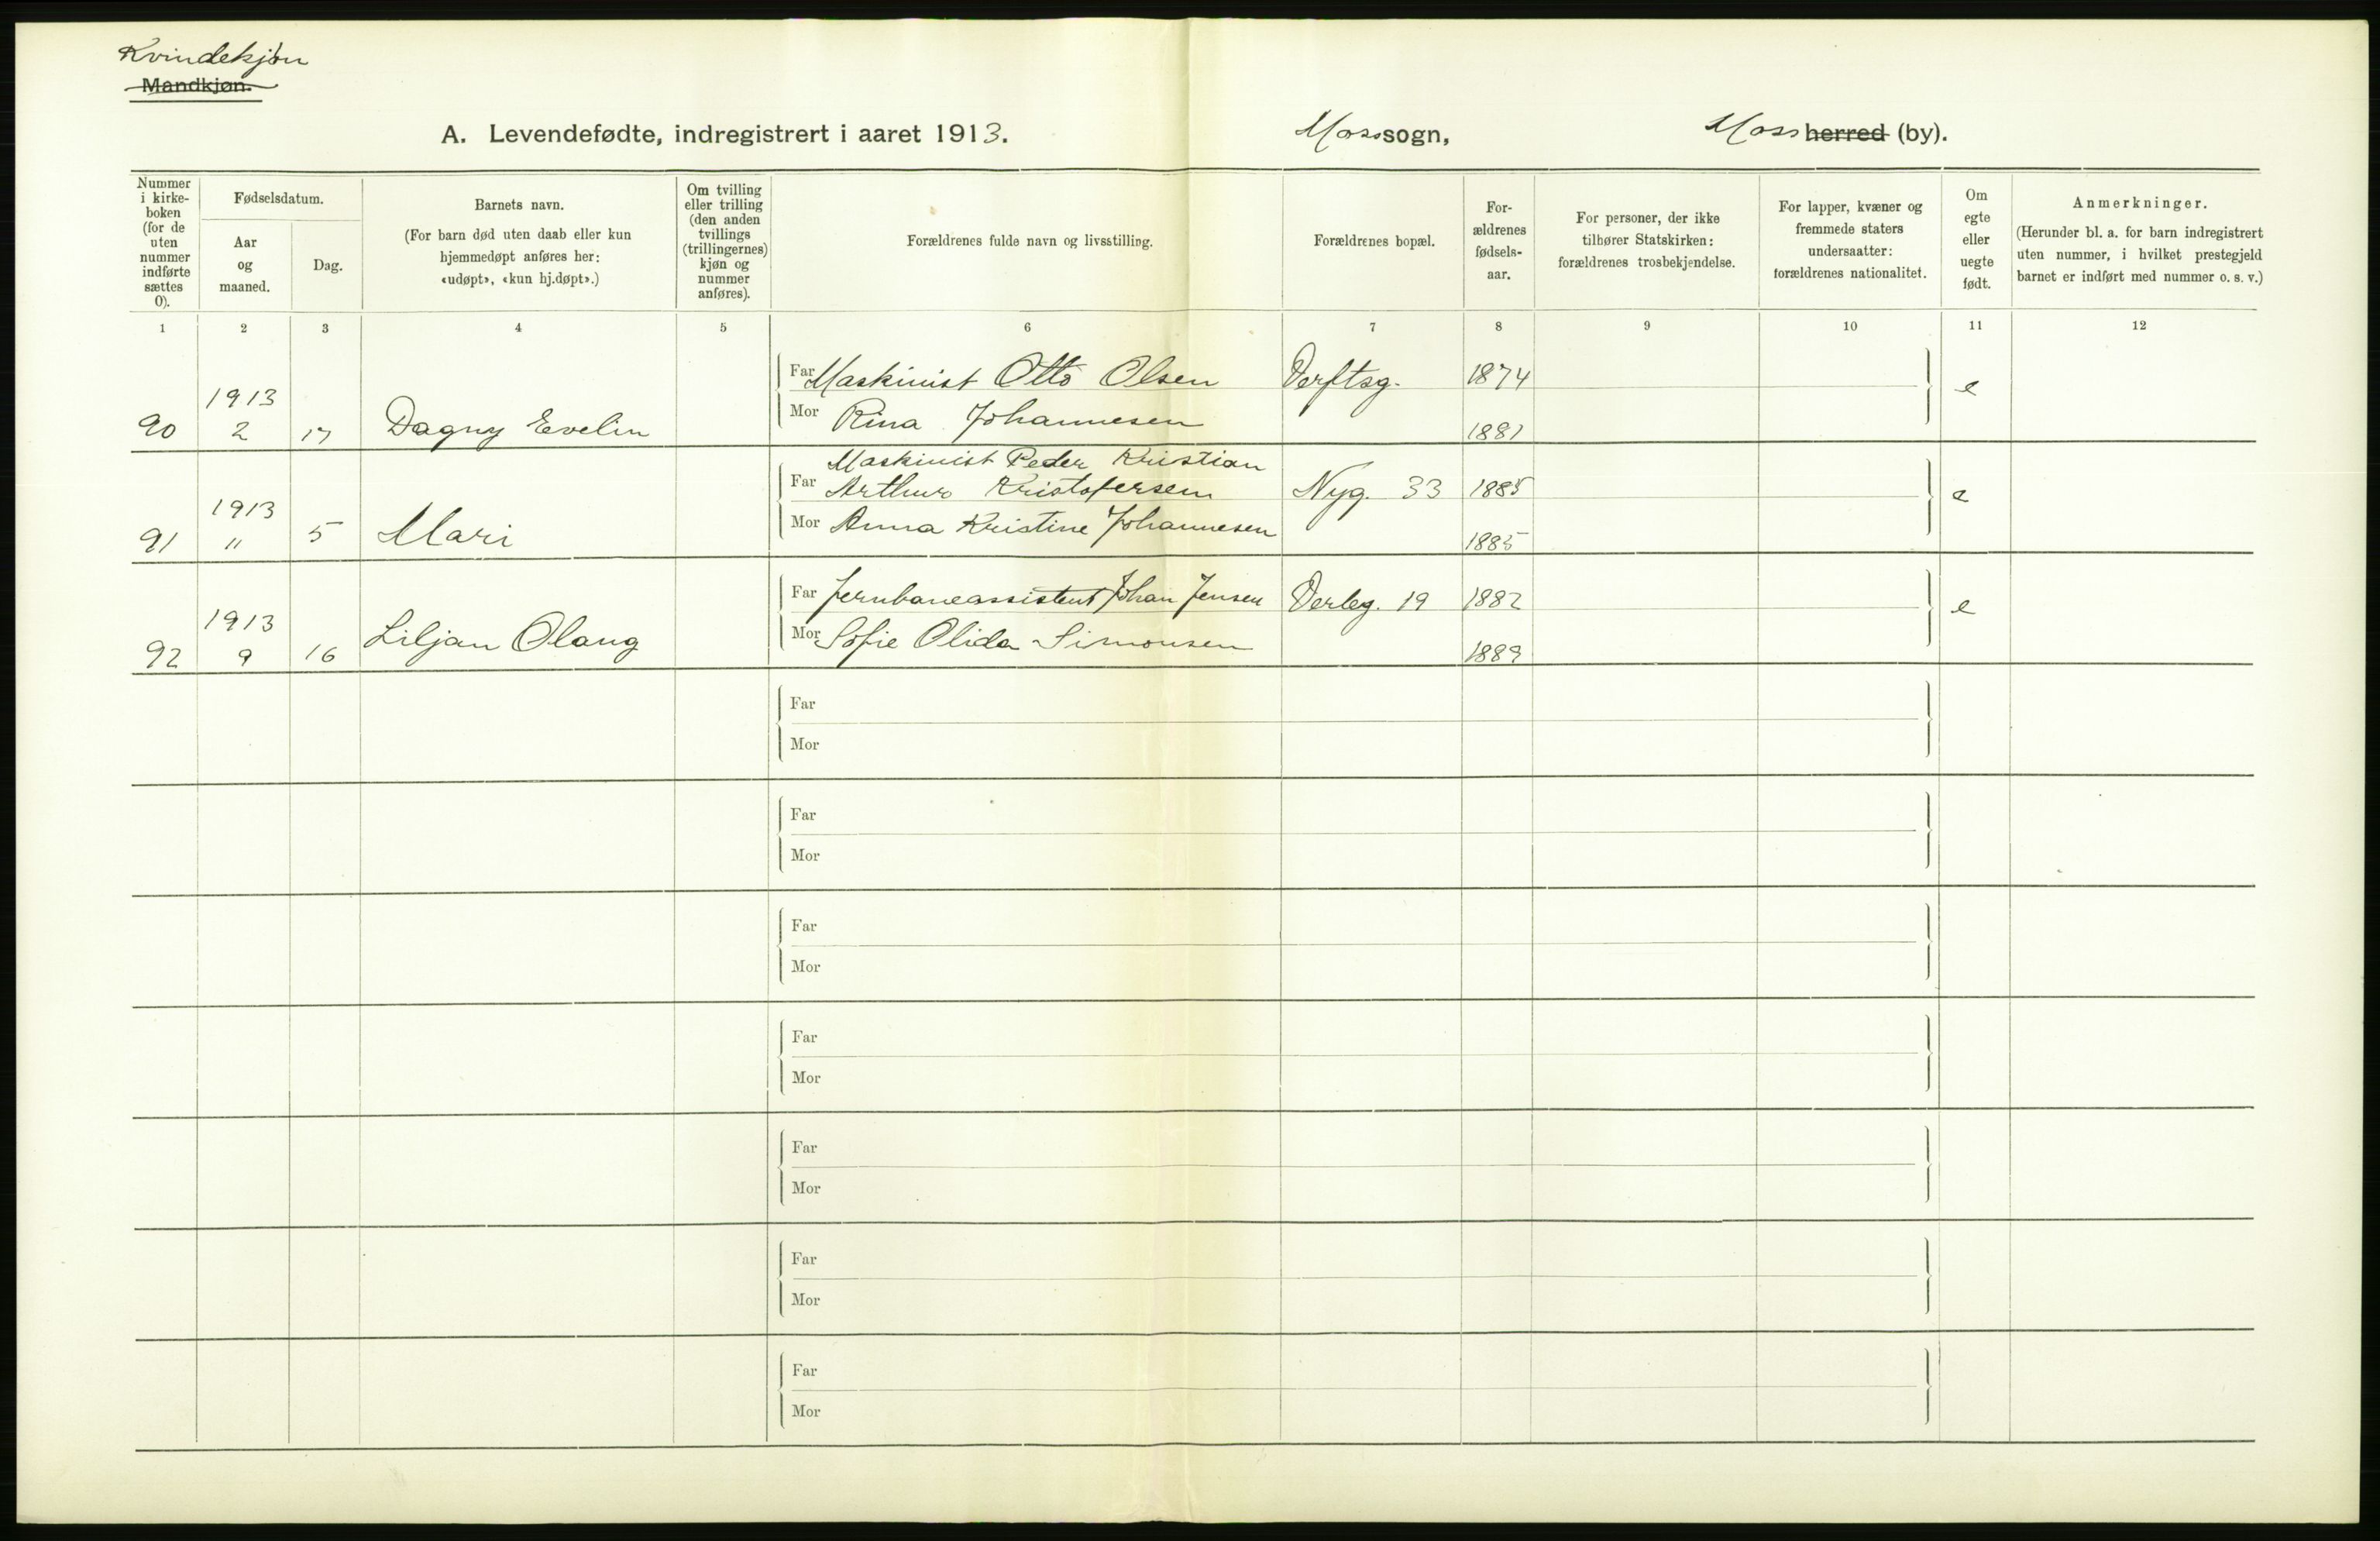 Kvindekjøn
Mandkjøn.
A. Levendefødte, indregistrert i aaret 1913. Moss sogn, Moss herred (by).
Nummer i kirke- boken (for de uten nummer indførte sættes 0).
Fødselsdatum.
Aar og maaned.
Dag.
Barnets navn.
(For barn død uten daab eller kun hjemmedøpt anføres her: «udøpt», «kun hj.døpt».)
Om tvilling eller trilling (den anden tvillings (trillingernes) kjøn og nummer anføres).
Forældrenes fulde navn og livsstilling.
Forældrenes bopæl.
For- ældrenes fødsels- aar.
For personer, der ikke tilhører Statskirken: forældrenes trosbekjendelse.
For lapper, kvæner og fremmede staters undersaatter: forældrenes nationalitet.
Om egte eller uegte født.
Anmerkninger.
(Herunder bl. a. for barn indregistrert uten nummer, i hvilket prestegjeld barnet er indført med nummer o. s. v.)
1 2 3 4 5 6 7 8 9 10 11 12
Far Maskinist Otto Olsen Verftsg. 1874 e
90 1913 2 17 Dagny Evelin
Mor Rina Johannesen 1881
Far Maskinist Peder Kristian
Arthur Kristofersen Nyg. 33 1885 e
91 1913 " 5 Mari
Mor Anna Kristine Johannesen 1885
Far Jernbaneassistent Johan Jensen Verleg. 19 1882 e
92 1913 9 16 Liljan Olaug
Mor Sofie Olida Simonsen 1889
Far
Mor
Far
Mor
Far
Mor
Far
Mor
Far
Mor
Far
Mor
Far
Mor